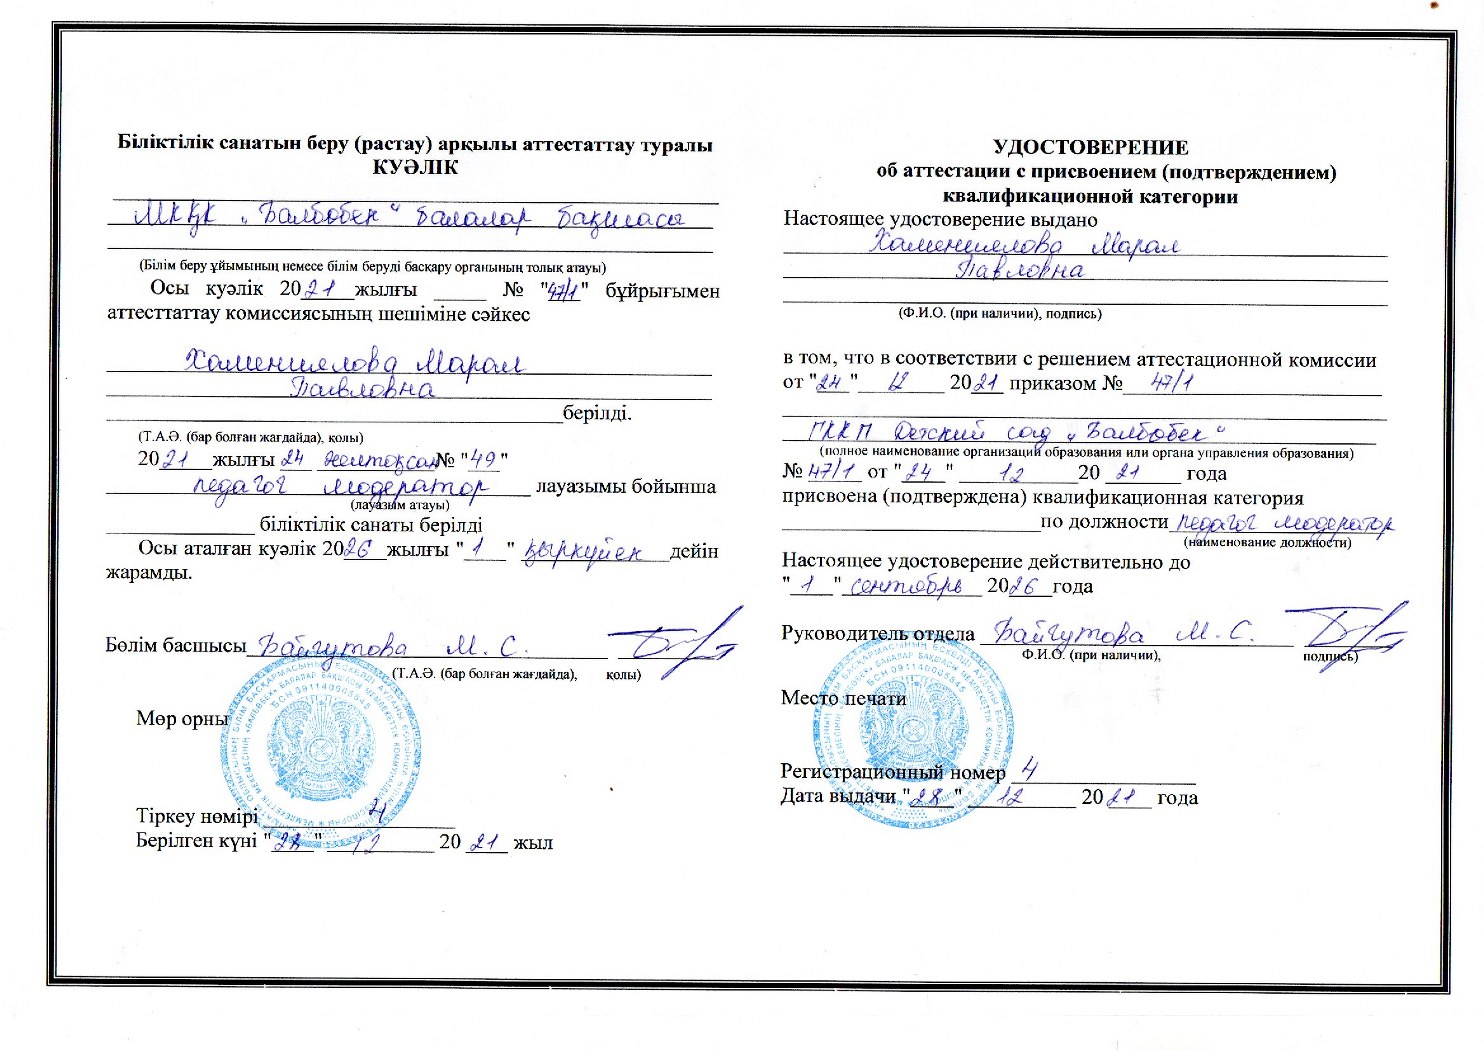 Біліктілік санатын беру (растау) арқылы аттестаттау туралы
КУӘЛІК
МКҚК „Балбөбек" балалар бақшасы
(Білім беру ұйымының немесе білім беруді басқару органының толық атауы)
Осы куәлік 2021 жылғы _____ № "47/1" бұйрығымен
аттесттаттау комиссиясының шешіміне сәйкес
Марал
Павловна
берілді.
(Т.А.Ә. (бар болған жағдайда), қолы)
2021 жылғы 24 желтоқсан № "49"
педагог модератор лауазымы бойынша
(лауазым атауы)
біліктілік санаты берілді
Осы аталған куәлік 2026 жылғы "1" қыркүйек дейін
жарамды.
Бөлім басшысы Байгутова М. С.
(Т.А.Ә. (бар болған жағдайда), қолы)
Мөр орны
Тіркеу нөмірі 4
Берілген күні "28" 12 2021 жыл
УДОСТОВЕРЕНИЕ
об аттестации с присвоением (подтверждением)
квалификационной категории
Настоящее удостоверение выдано
Марал
Павловна
(Ф.И.О. (при наличии), подпись)
в том, что в соответствии с решением аттестационной комиссии
от "24" 12 2021 приказом № 47/1
ГККП Детский сад „Балбөбек"
(полное наименование организации образования или органа управления образования)
№ 47/1 от "24" 12 2021 года
присвоена (подтверждена) квалификационная категория
по должности педагог модератор
(наименование должности)
Настоящее удостоверение действительно до
"1" сентябрь 2026 года
Руководитель отдела Байгутова М. С.
Ф.И.О. (при наличии), подпись)
Место печати
Регистрационный номер 4
Дата выдачи "28" 12 2021 года